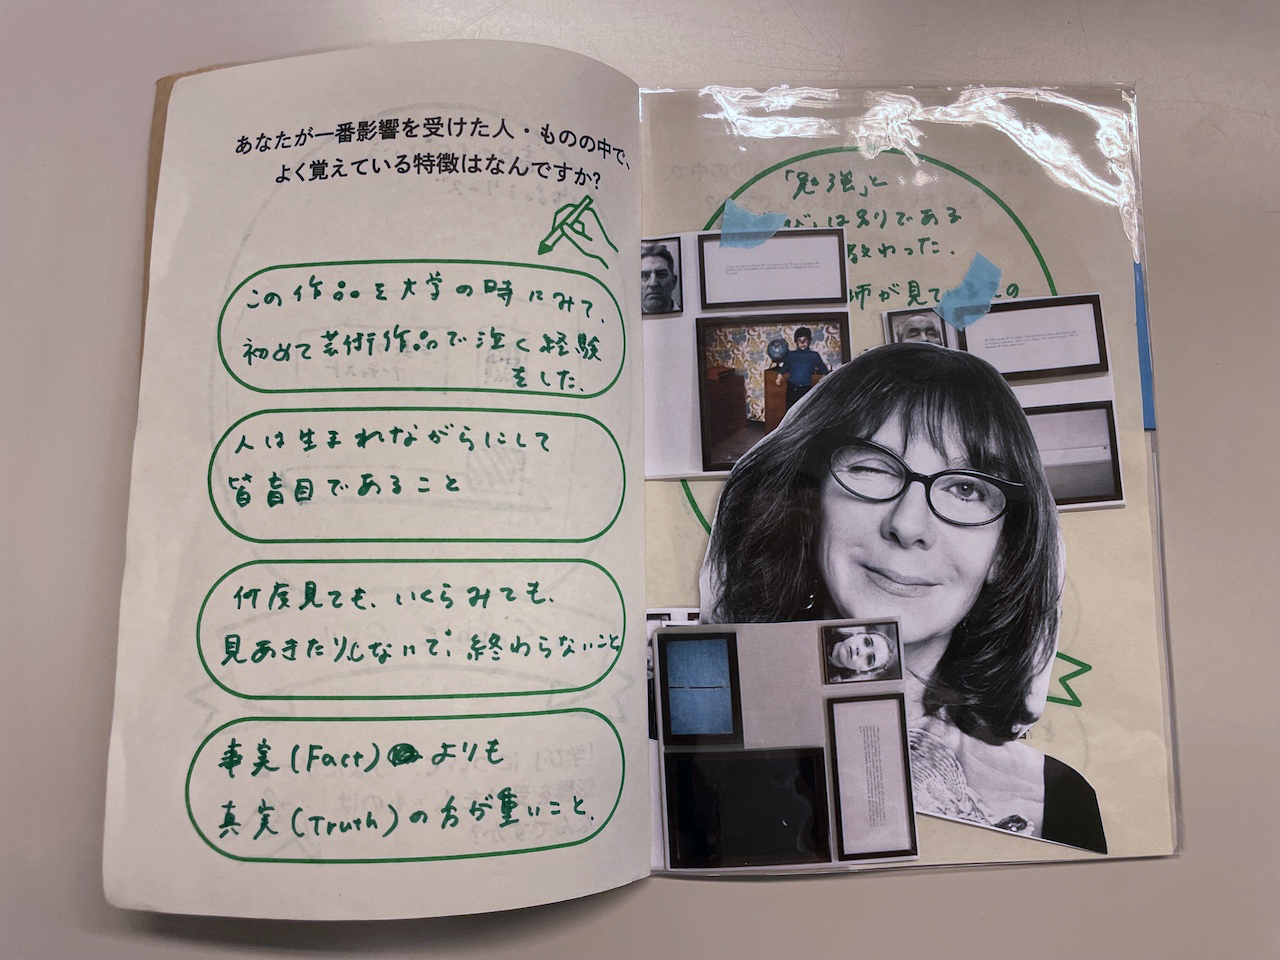 あなたが一番影響を受けた人・ものの中で、
よく覚えている特徴はなんですか?
この作品を大学の時にみて、
初めて芸術作品で泣く経験
をした。
人は生まれながらにして
皆盲目であること
何度見ても、いくらみても、
見あきたりしないで、終わらないこと
事実(Fact)よりも
真実(Truth)の方が重いこと。
「勉強」と
び」は別りである
教わった.
師が見て
の